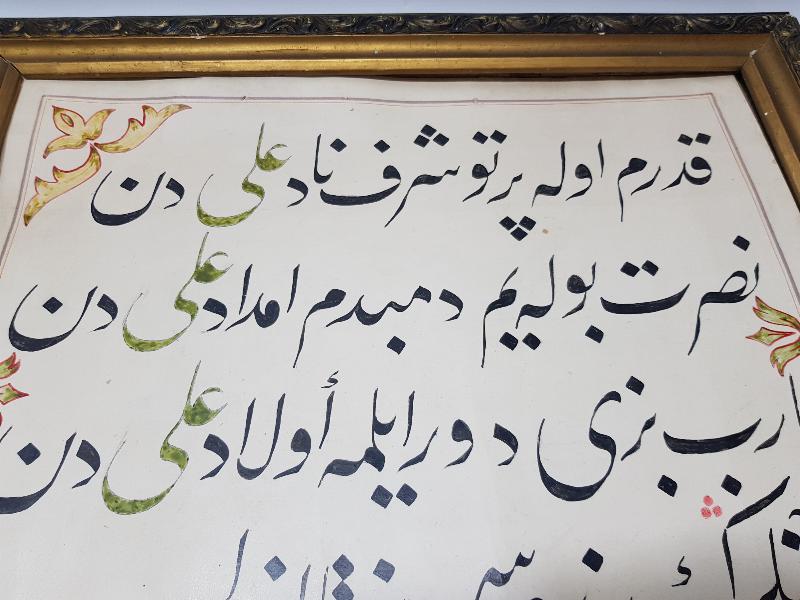 قدرم اوله پرتو شرف ناد علی دن
نصرت بوله یم دمبدم امداد علی دن
یارب بزی دور ایلمه أولاد علی دن